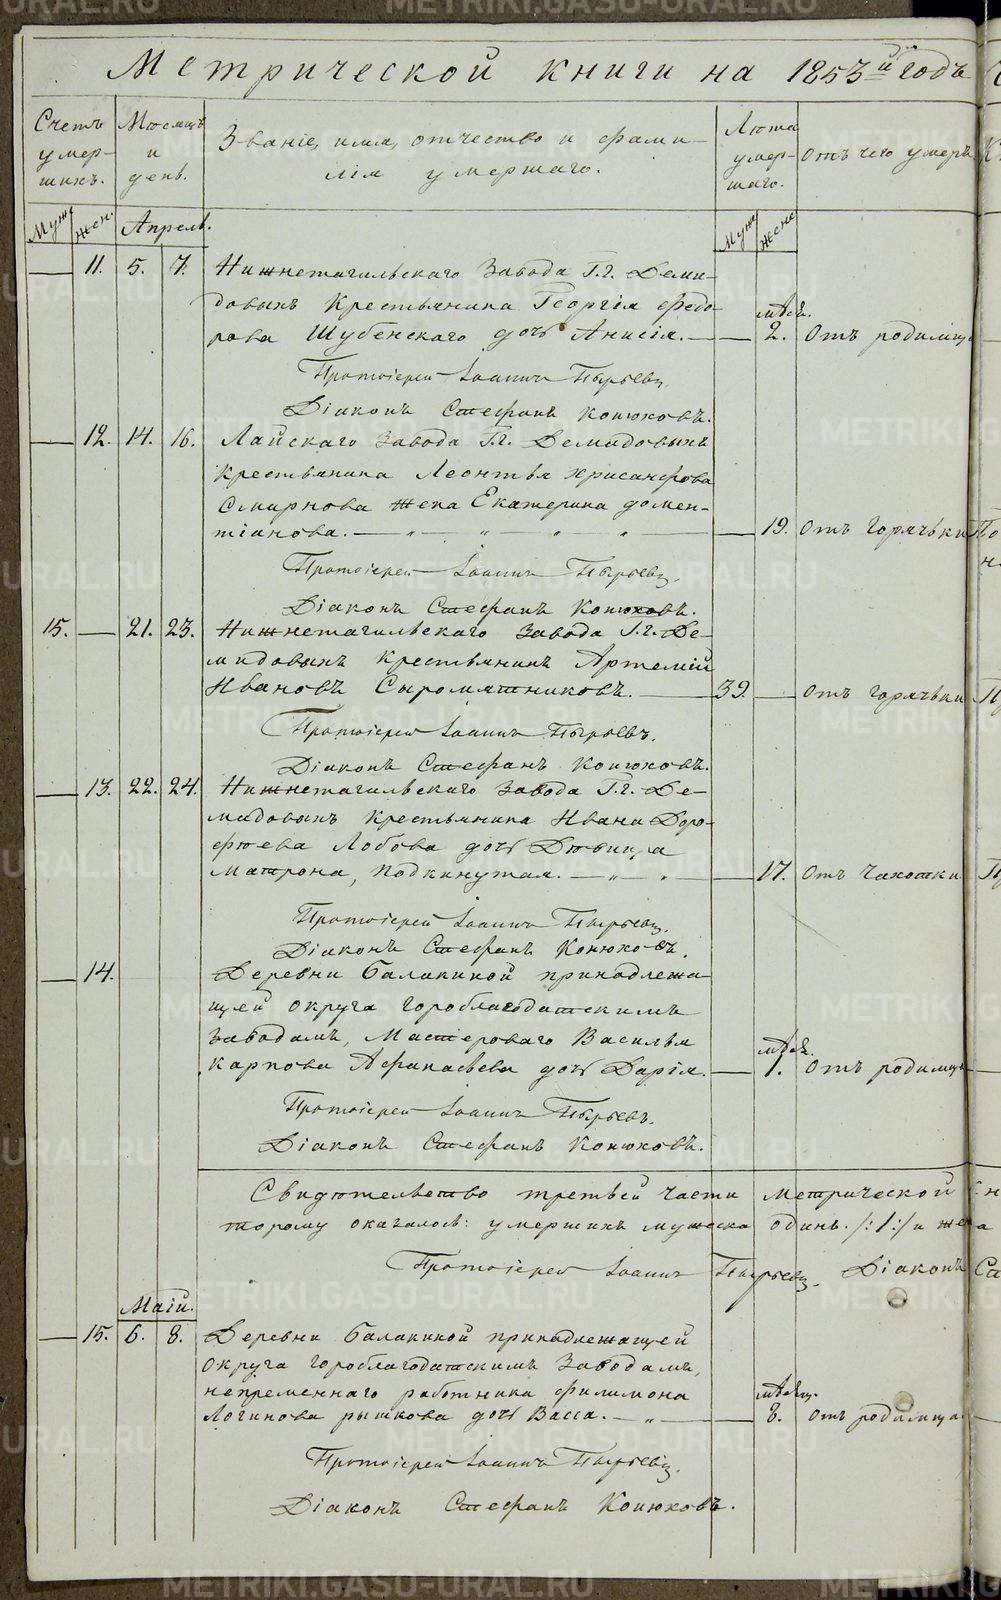 Метрической книги на 1853й годъ
Счетъ умер- шихъ.
Мѣсяцъ и день.
Званіе, имя, отчество и фами-
лія умершаго.
Лѣта умер- шаго.
Отъ чего умеръ
Муж. Жен. Апрель. Муж. Жен.
11. 5. 7. Нижнетагильскаго Завода Г.г. Деми-
довыхъ Крестьянина Георгія Федо- мѣся.
рова Шубенскаго дочь Анисія. 2. Отъ родимца
Протоіерей Іоаннъ Пырьевъ.
Діаконъ Стефанъ Конюховъ.
12. 14. 16. Лайскаго Завода Г.г. Демидовыхъ
Крестьянина Леонтья Хрисанфова
Смирнова жена Екатерина Домен-
тіанова. 19. Отъ Горячьки
Протоіерей Іоаннъ Пырьевъ.
Діаконъ Стефанъ Конюховъ.
15. 21. 23. Нижнетагильскаго Завода Г.г. Де-
мидовыхъ Крестьянинъ Артемій
Ивановъ Сыромятниковъ. 39. Отъ горячьки
Протоіерей Іоаннъ Пырьевъ.
Діаконъ Стефанъ Конюховъ.
13. 22. 24. Нижнетагильскаго Завода Г.г. Де-
мидовыхъ Крестьянина Ивана Доро-
фѣева Лобова дочь Дѣвица
Матрона, Подкинутая. 17. Отъ Чахотки
Протоіерей Іоаннъ Пырьевъ.
Діаконъ Стефанъ Конюховъ.
14. Деревни Балакиной принадлежа-
щей округа Гороблагодатскимъ
Заводамъ, Мастероваго Василья мѣся.
Карпова Афанасьева дочь Дарія. 1. Отъ родимца
Протоіерей Іоаннъ Пырьевъ.
Діаконъ Стефанъ Конюховъ.
Свидѣтельство третьей части Метрической кн
торому оказалось: умершихъ мужеска одинъ /:1:/ и жена
Протоіерей Іоаннъ Пырьевъ. Діаконъ
Маій.
15. 6. 8. Деревни Балакиной принадлежащей
округа Гороблагодатскимъ Заводамъ,
непременнаго работника Филимона мѣсяц.
Логинова рышкова дочь Васса. 8. Отъ родимца.
Протоіерей Іоаннъ Пырьевъ.
Діаконъ Стефанъ Конюховъ.
METRIKI.GASO-URAL.RU